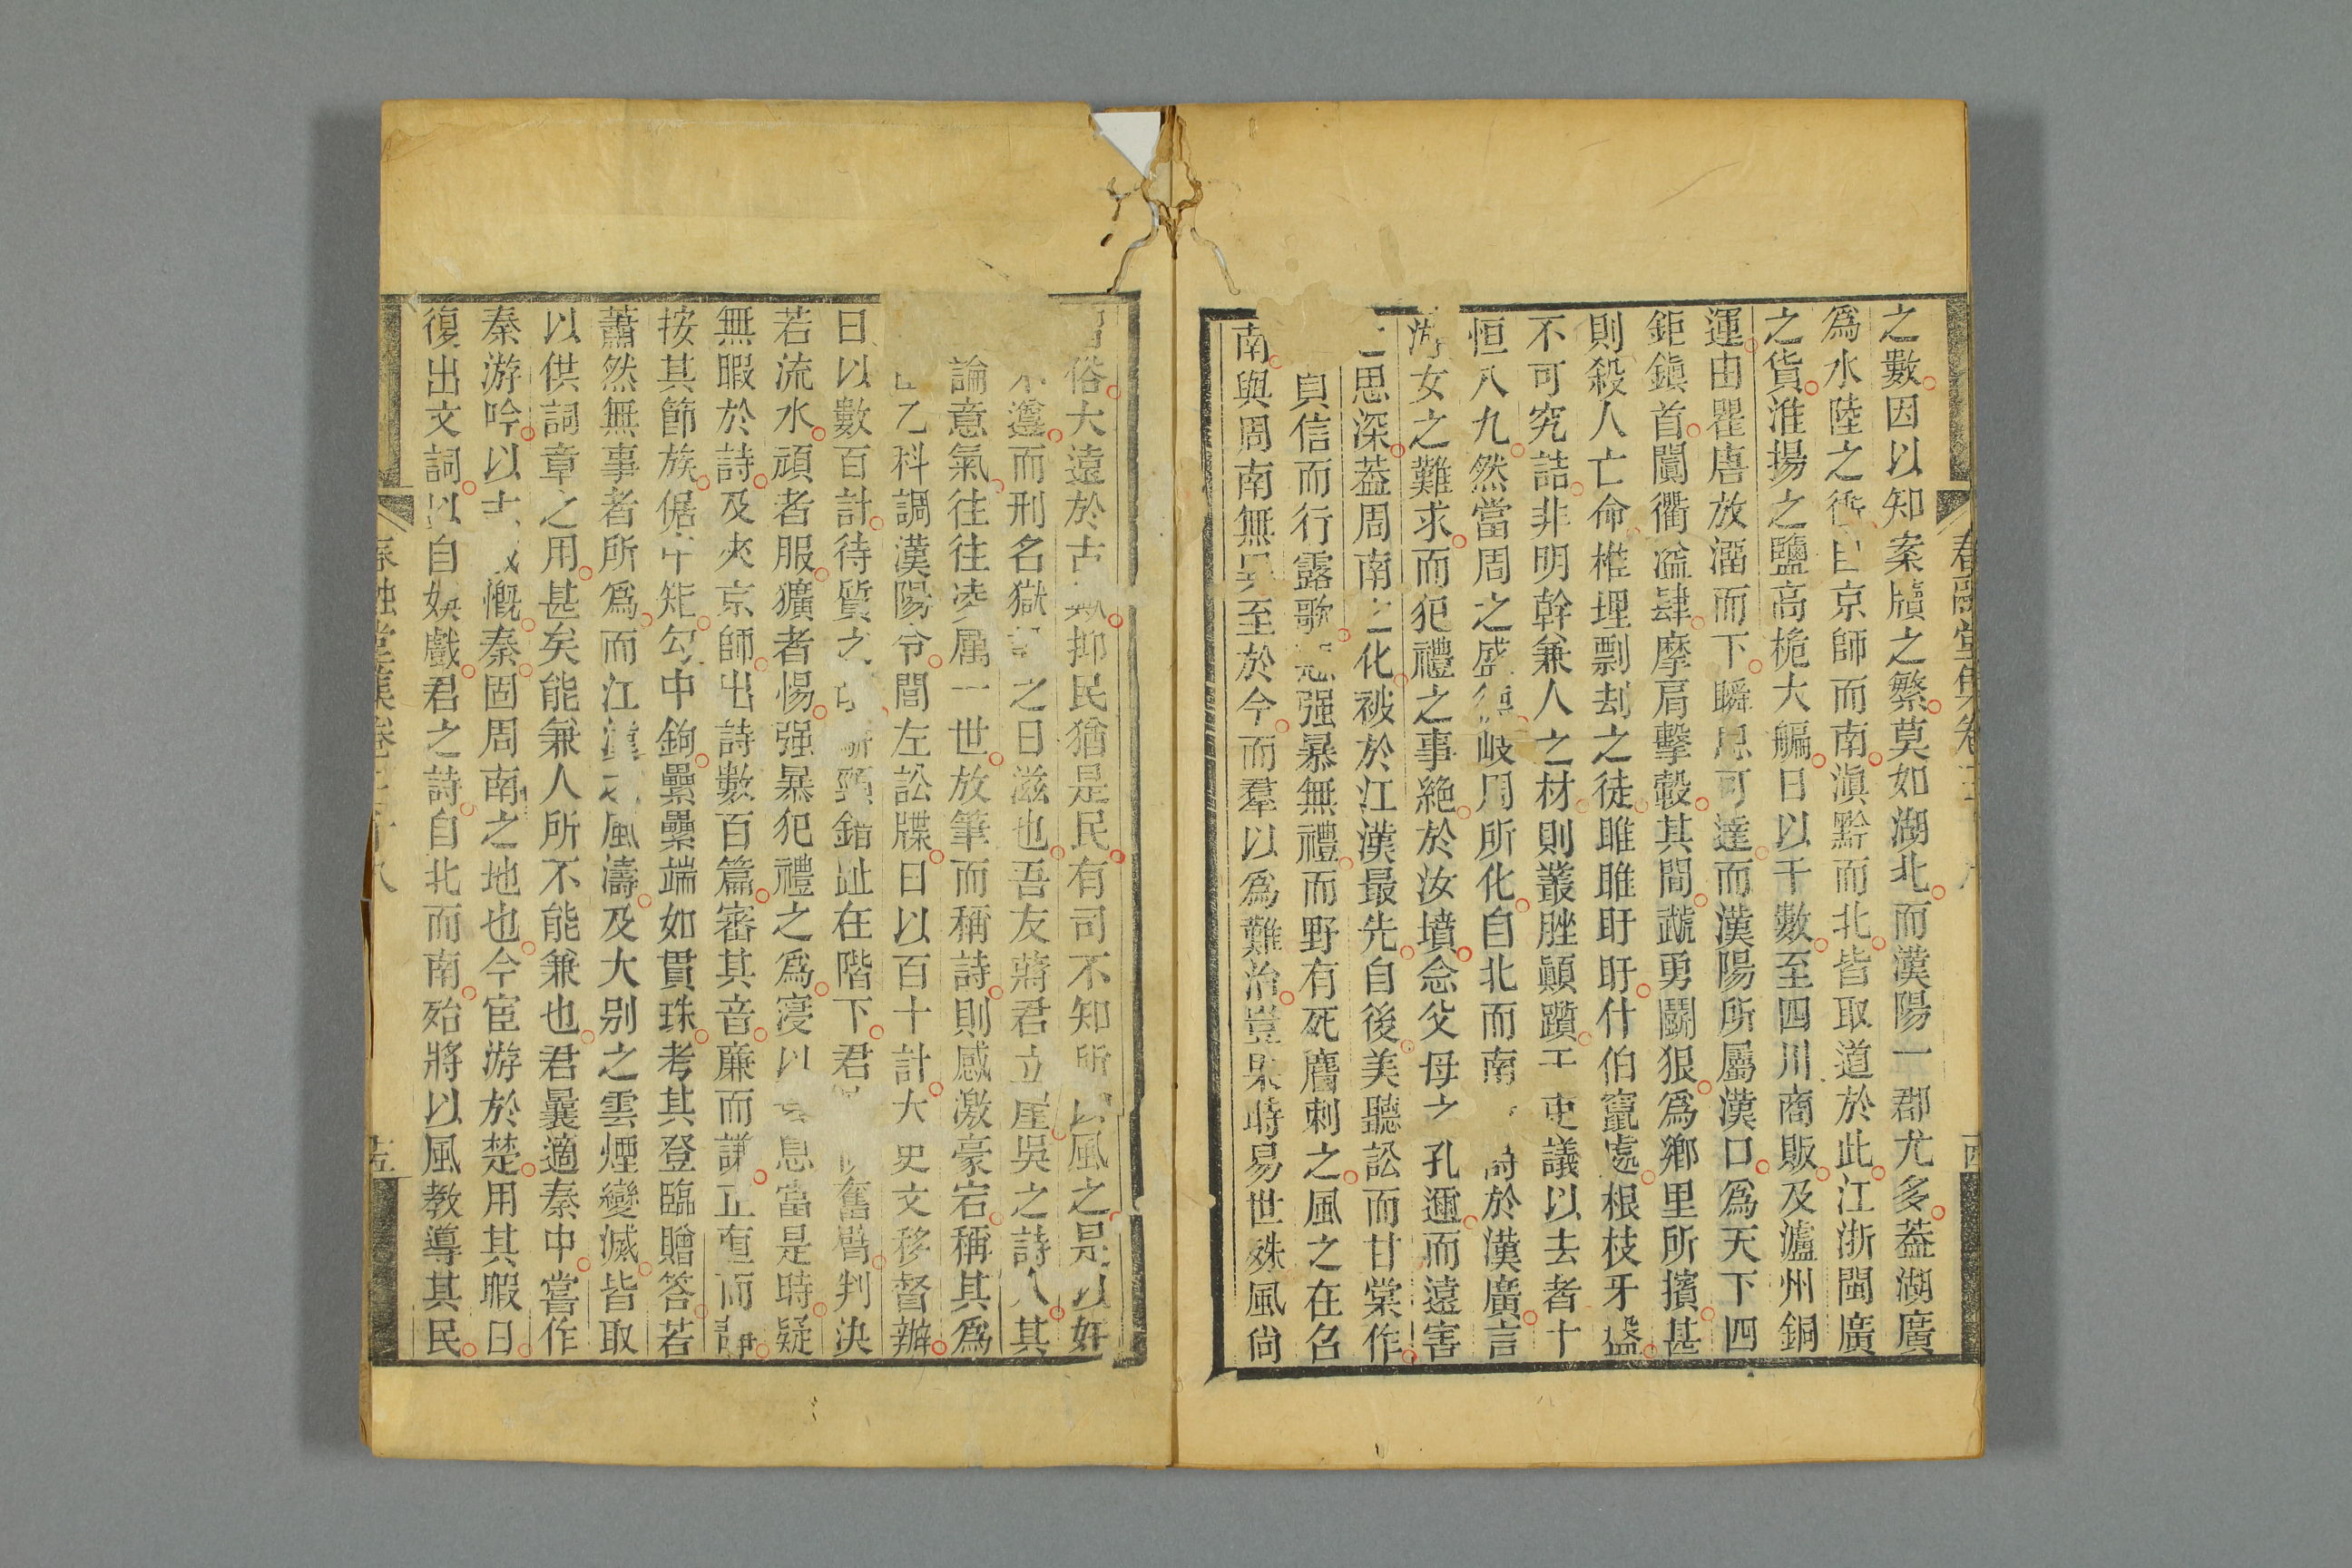 之數因以知案牘之繁莫如湖北而漢陽一郡尤多葢湖廣
爲水陸之衝自京師而南滇黔而北皆取道於此江浙閩廣
之貨淮揚之鹽高桅大艑日以千數至四川商販及瀘州銅
運由瞿唐放溜而下瞬息可達而漢陽所屬漢口爲天下四
鉅鎭首闤衢溢肆摩肩擊轂其間鬷勇鬬狠爲鄕里所擯甚
則殺人亡命椎埋剽刦之徒雎雎盱盱什伯竄處根枝牙盤
不可究詰非明幹兼人之材則叢脞顚躓干吏議以去者十
恒八九然當周之盛岐周所化自北而南詩於漢廣言
游女之難求而犯禮之事絶於汝墳念父母之孔邇而遠害
之思深葢周南之化被於江漢最先自後美聽訟而甘棠作
貞信而行露歌惡强暴無禮而野有死麕刺之風之在召
南與周南無異至於今而羣以爲難治豈果時易世殊風尚
俗大遠於古歟抑民猶是民有司不知所以風之是以奸
不遵而刑名獄之日滋也吾友蔣君立崖吳之詩人其
論意氣往往凌厲一世放筆而稱詩則感激豪宕稱其爲
乙科調漢陽令閭左訟牒日以百十計大史文移督辦
日以數百計待質之頸錯趾在階下君奮臂判決
若流水頑者服獷者惕强暴犯禮之爲寖以衰息當是時疑
無暇於詩及來京師出詩數百篇審其音廉而謙正直而靜
按其節族倨中矩勾中鉤纍纍端如貫珠考其登臨贈答若
蕭然無事者所爲而江漢之風濤及大别之雲煙變滅皆取
以供詞章之用甚矣能兼人所不能兼也君曩適秦中嘗作
秦游吟以慨秦固周南之地也今宦游於楚用其暇日
復出文詞以自娛戲君之詩自北而南殆將以風教導其民
春融堂集卷三十八